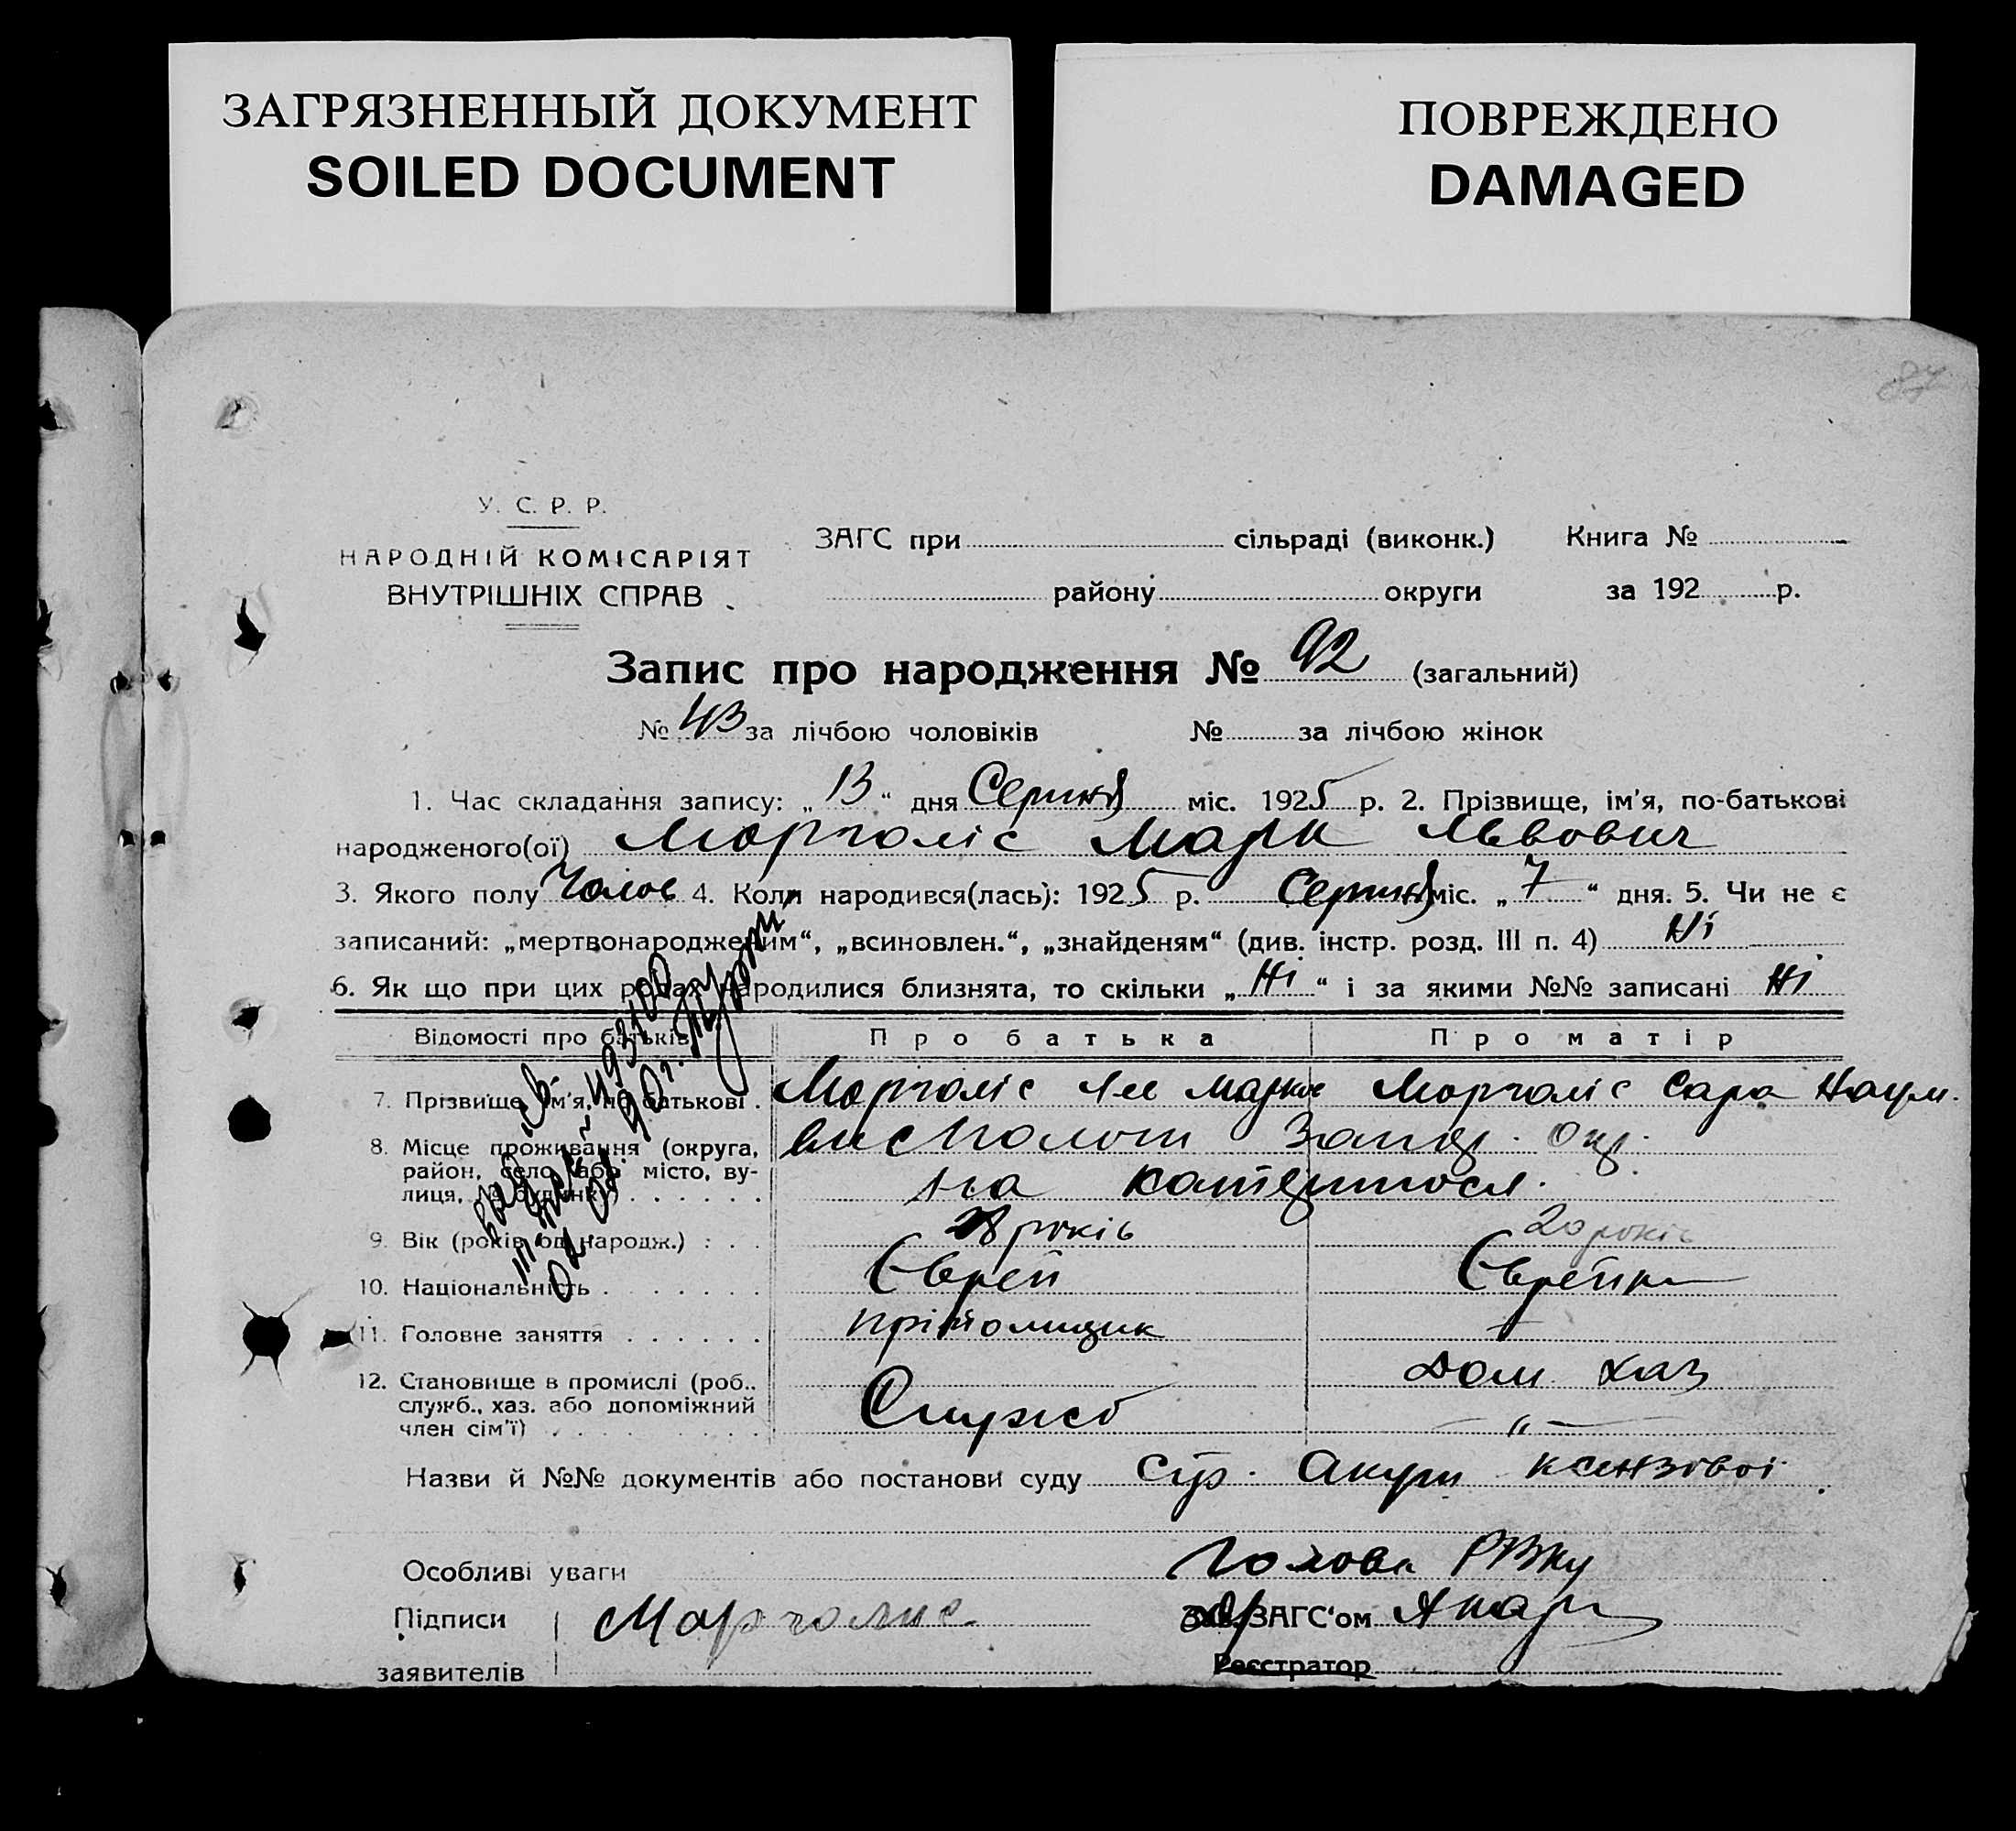 ЗАГРЯЗНЕННЫЙ ДОКУМЕНТ
SOILED DOCUMENT
ПОВРЕЖДЕНО
DAMAGED
87
У. С. Р. Р.
НАРОДНІЙ КОМІСАРІЯТ
ВНУТРІШНІХ СПРАВ
ЗАГС при сільраді (виконк.) Книга №
району округи за 192 р.
Запис про народження № 92 (загальний)
№ 43 за лічбою чоловіків № за лічбою жінок
1. Час складання запису: „13“ дня Серпня міс. 1925 р. 2. Прізвище, ім'я, по-батькові
народженого(ої) Морголіс Марк Львович
3. Якого полу Чолов 4. Коли народився(лась): 1925 р. Серпня міс. „7“ дня. 5. Чи не є
записаний: „мертвонародженим“, „всиновлен.“, „знайденям“ (див. інстр. розд. III п. 4) Ні
6. Як що при цих родах народилися близнята, то скільки „Ні“ і за якими №№ записані Ні
Відомості про батьків Про батька Про матір
7. Прізвище, ім'я, по батькові Морголіс Лев Марков Морголіс Сара Наум.
8. Місце проживання (округа,
район, село або місто, ву-
лиця, № будинку)
9. Вік (років од народж.) 28 років 20 років
10. Національність Єврей Єврейка
11. Головне заняття
12. Становище в промислі (роб.,
служб., хаз. або допоміжний
член сім'ї)
Дом хаз
Служб „
Назви й №№ документів або постанови суду Акуш
Особливі уваги Голова РВКу
Підписи Марголис Зав. ЗАГС'ом
заявителів Реєстратор